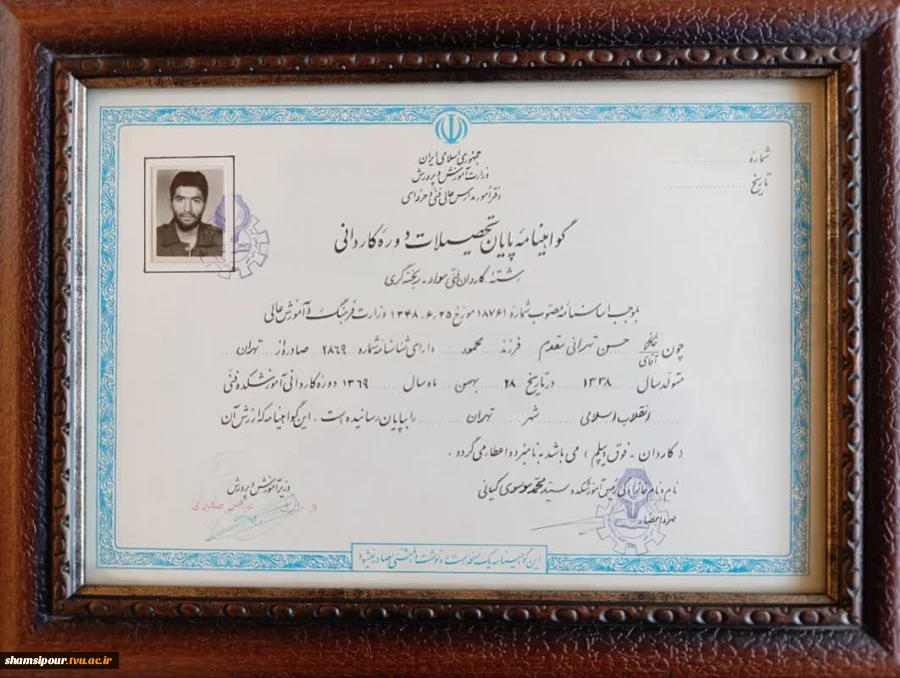 جمهوری اسلامی ایران
وزارت آموزش و پرورش
دفتر امور مدارس عالی فنی و حرفه‌ای
شماره
تاریخ
گواهینامه پایان تحصیلات دوره کاردانی
رشته کاردان فنی مواد - ریخته گری
بموجب اساسنامه مصوب شماره ۱۸۷۶۱ مورخ ۱۳۴۸،۶،۲۵ وزارت فرهنگ و آموزش عالی
چون خانم آقای حسن تهرانی مقدم فرزند محمود دارای شناسنامه شماره ۲۸۶۹ صادره از تهران
متولد سال ۱۳۳۸ در تاریخ ۲۸ بهمن ماه سال ۱۳۶۹ دوره کاردانی آموزشکده فنی
انقلاب اسلامی شهر تهران را بپایان رسانیده است . این گواهینامه که ارزش آن
(کاردان - فوق دیپلم) می باشد به نامبرده اعطا می گردد .
نام و نام خانوادگی رئیس آموزشکده سید محمد موسوی کیانی
مهر و امضاء
وزیر آموزش و پرورش
این گواهینامه یک نسخه است و رونوشت المثنی صادر نمیشود
shamsipour.tvu.ac.ir